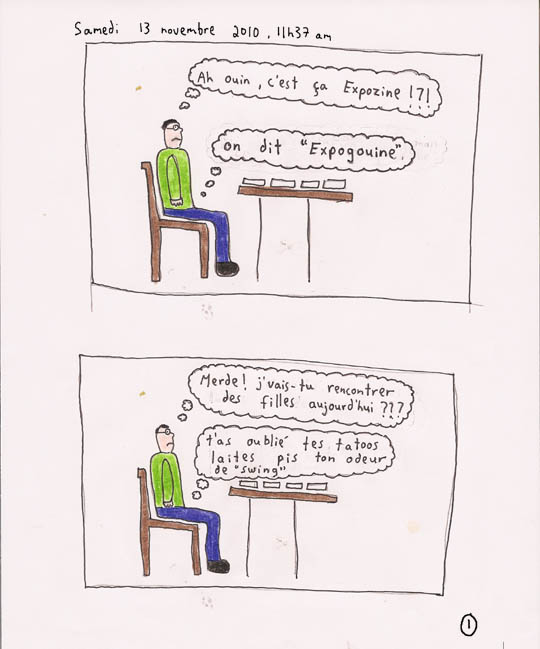 Samedi 13 novembre 2010, 11h37 am
Ah ouin, c'est ça Expozine !?!
on dit "Expogouine".
Merde! j'vais-tu rencontrer
des filles aujourd'hui ???
t'as oublié tes tatoos
laites pis ton odeur
de "swing"
1